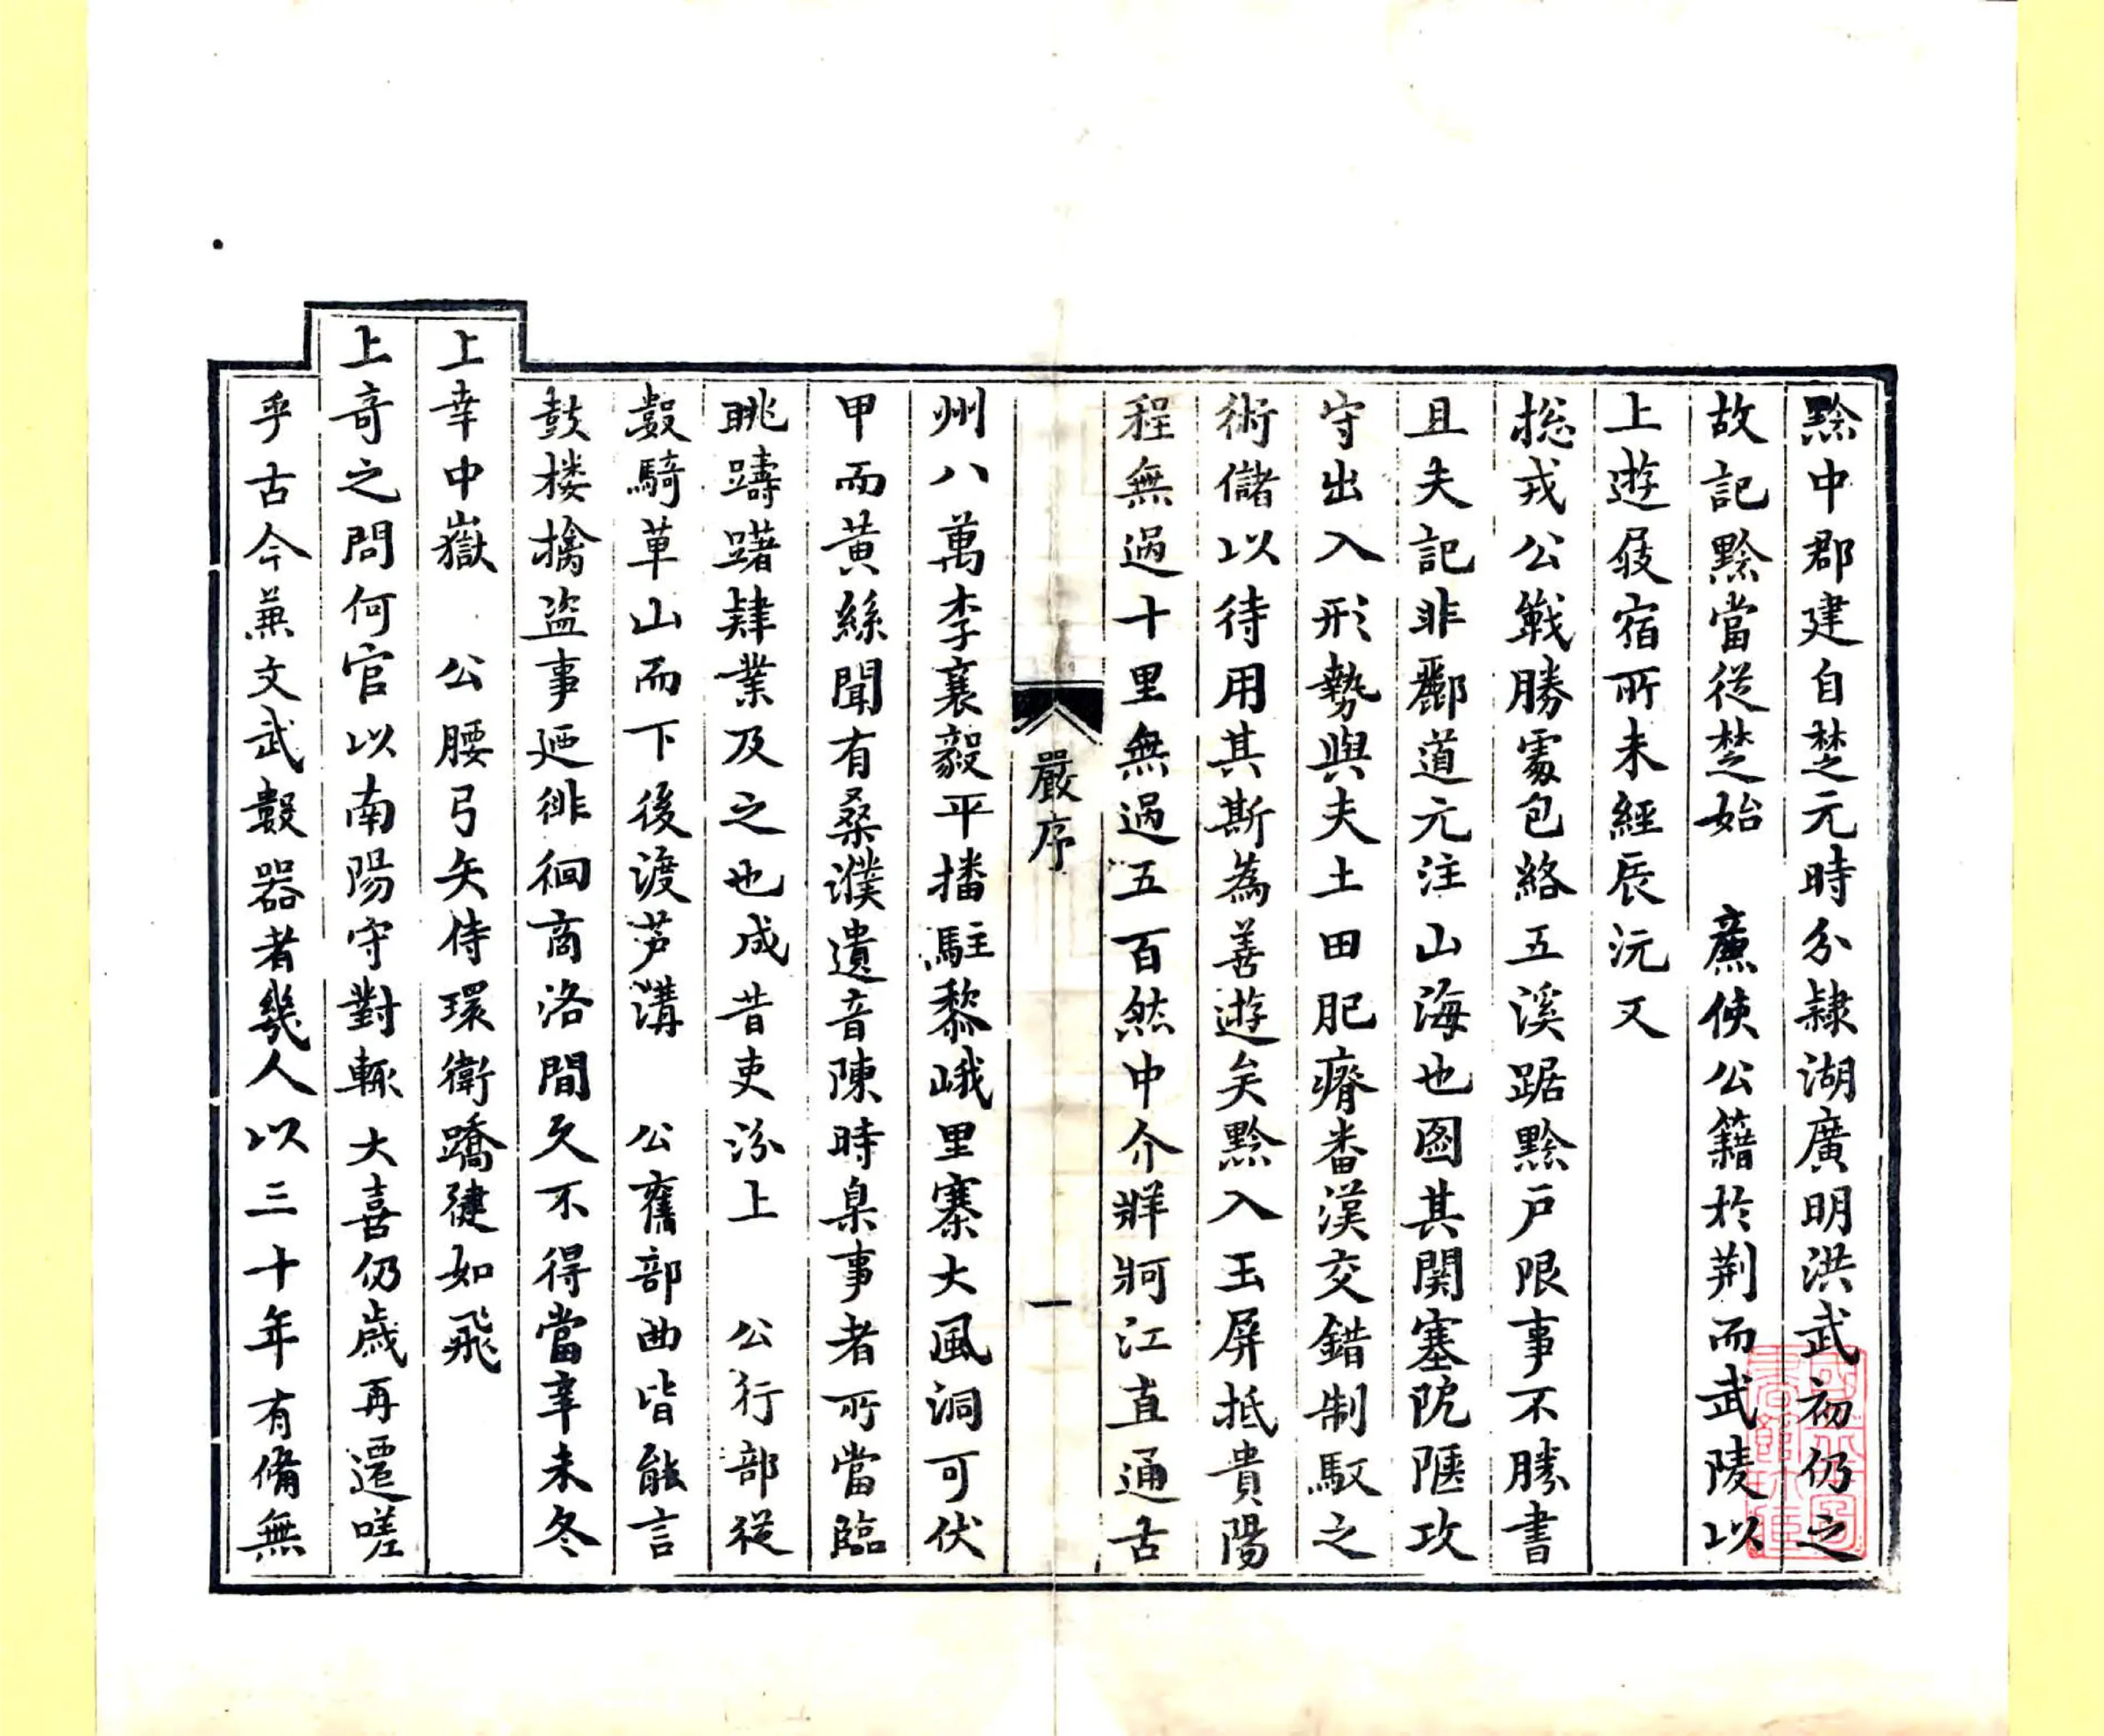 黔中郡建自楚元時分隸湖廣明洪武初仍之
故記黔當從楚始　廉使公籍於荆而武陵以
上遊屐宿所未經辰沅又
揔戎公戰勝䖏包絡五溪踞黔戶限事不勝書
且夫記非酈道元注山海也圖其関塞阸陿攻
守出入形勢與夫土田肥瘠畨漢交錯制馭之
術儲以待用其斯為善遊矣黔入玉屏抵貴陽
程無過十里無過五百然中介牂牁江直通古
嚴序
一
州八萬李襄毅平播駐黎峨里寨大風洞可伏
甲而黃絲聞有桑濮遺音陳時臬事者所當臨
眺躊躇肄業及之也成昔吏汾上　公行部從
數騎草山而下後渡芦溝　公舊部曲皆能言
鼓楼擒盜事廻徘徊商洛間久不得當辛未冬
上幸中嶽　公腰弓矢侍環衛蹻健如飛
上奇之問何官以南陽守對輒大喜仍歲再遷嗟
乎古今兼文武數器者幾人以三十年有俻無